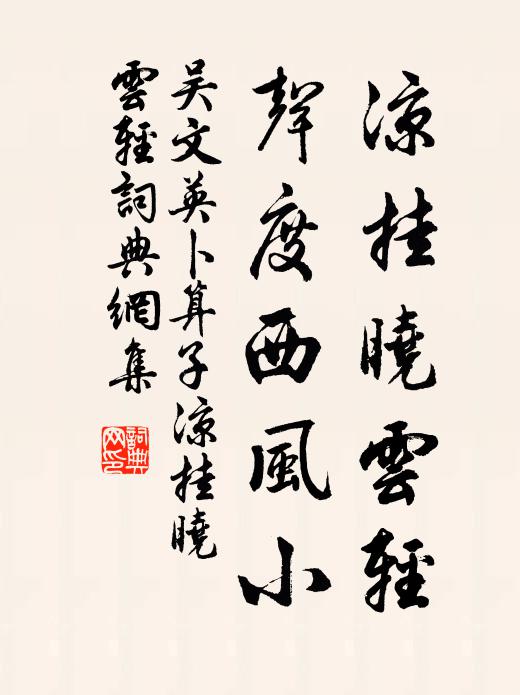 涼挂曉雲輕
聲度西風小
吴文英卜算子涼挂曉
雲輕詞典網集
詞典
网印